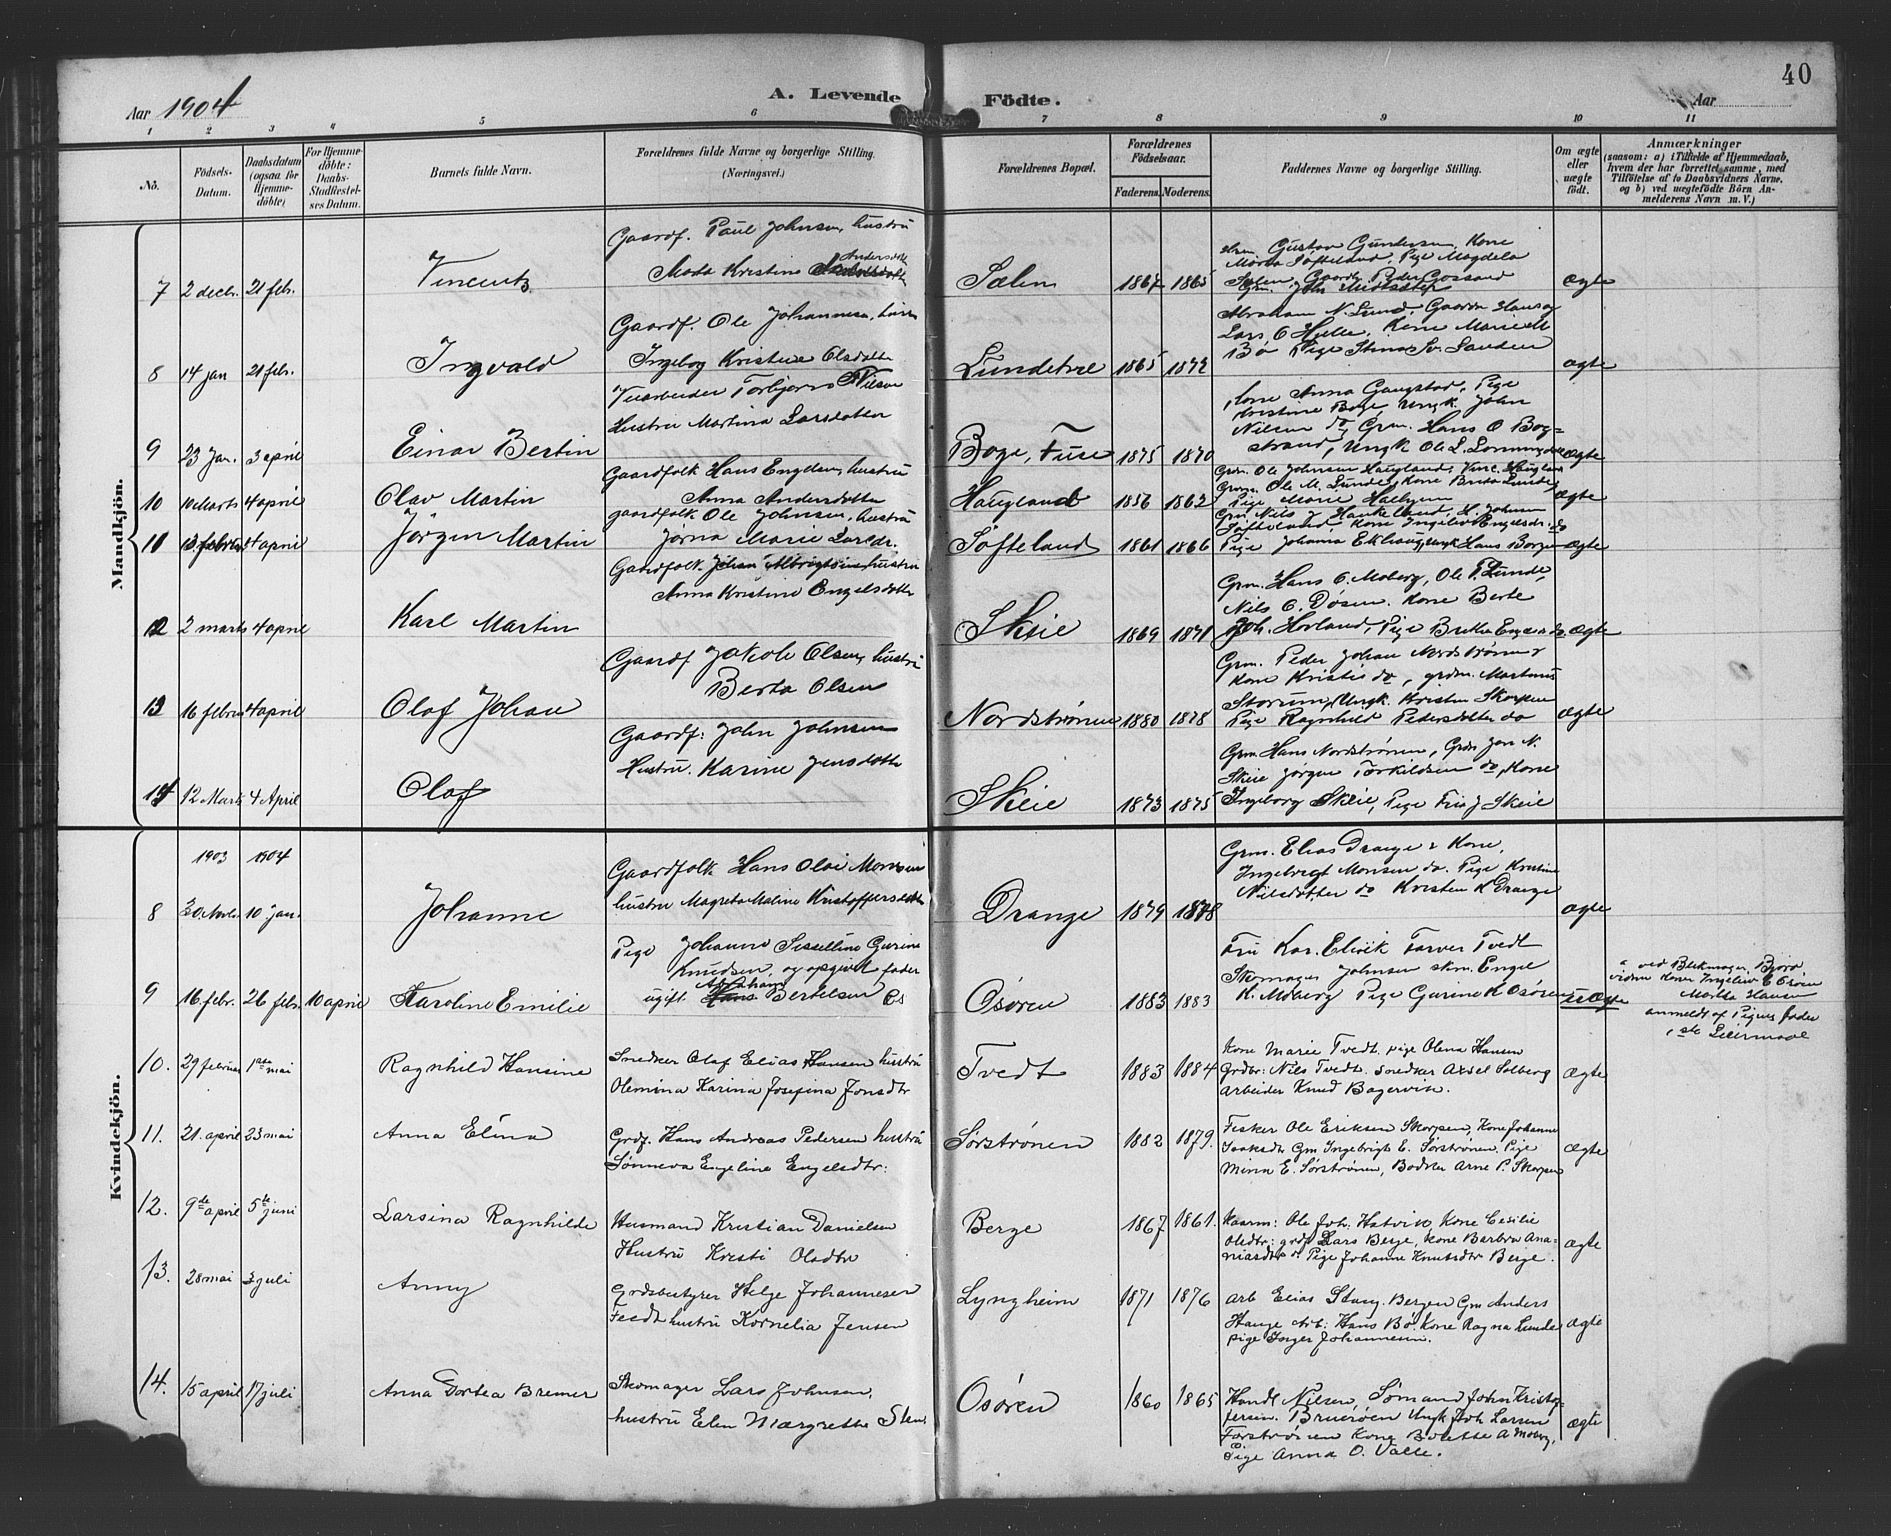 40
Aar 1904
A. Levende Födte.
Aar
1 2 3 4 5 6 7 8 9 10 11
No.
Födsels-Datum.
Daabsdatum (ogsaa for Hjemmedöbte)
For Hjemmedöbte: Daabs-Stadfæstelses Datum.
Barnets fulde Navn.
Forældrenes fulde Navne og borgerlige Stilling. (Næringsvei.)
Forældrenes Bopæl.
Forældrenes Födselsaar.
Faderens. Moderens.
Faddernes Navne og borgerlige Stilling.
Om ægte eller uægte födt.
Anmærkninger
(saasom: a) i Tilfælde af Hjemmedaab, hvem der har forrettet samme, med Tilföielse af to Daabsvidners Navne, og b) ved uægtefödte Börn Anmelderens Navn m. V.)
Mandkjön.
7 2 decbr. 21 febr. Vincents
Gaardf. Paul Johnsen, hustru
Kristine Andersdatter
Sælen 1867 1865
Gustav Gundersen, Kone
Søfteland, Pige Magdela
ægte
8 14 jan 21 febr. Ingvald
Gaardf. Ole Johannesen,
Ingebog Kristine Olsdatter
Lundetræ 1865 1872
Abraham N. Lund, Gaardm Hans og
Lars O
Bø Pige Stina
ægte
9 23 Jan. 3 april Einar Bertin
Torbjørn Nilsen
Hustru Martina Larsdatter
Boge, Fuse 1875 1870
Kone Anna Gaugstad, Pige
Kristine Boge, Ungk. John
Nilsen do, Grm. Hans O Bog=
strand, Ungk Ole L.
ægte
10 10 Marts 4 april Olav Martin
Gaardfolk Hans Engelsen, hustru
Anna Andersdatter
Haugland 1856 1862
Grm. Ole Johnsen Haugland, Kone
Grm. Ole M. Lunde, Kone Brita Lunde,
Pige Marie
ægte
11 13 februar 4 april Jørgen Martin
gaardfolk Ole Johnsen, hustru
Jørna Marie Larsdr.
Søfteland 1861 1866
Gm. Nils J Haukeland, H. Johnsen
Søfteland, Kone Ingeliv Engelsdr. do
Pige Johanna Ungk Hans
ægte
12 2 marts 4 april Karl Martin
Gaardfolk. Johan hustru
Anna Kristine Engelsdatter
Skeie 1869 1871
Grm. Hans O. Moberg, Ole P. Lunde,
Nils O. Døsen. Kone Berte
Joh. Hovland, Pige Do
ægte
13 16 febru 4 april Olaf Johan
Gaardf Jakob Olsen, hustru
Berta Olsen
Nordstrønen 1880 1878
Grm. Peder Johan Nordstrønen
Kone Kristi do, grdm. Martinus
Storum, Ungk. Kristen Skorpen
Pige Ragnhild Pedersdatter do
ægte
14 12 Marts 4 April Olaf
Gaardf: John Johnsen
Hustru. Karine Jensdatter
Skeie 1873 1875
Grm Hans Nordstrønen, Grdm Jan N.
Skeie Jørgen Torkildsen do, Kone
Ingeborg Skeie, Pige J Skeie
Kvindekjön.
1903 1904
8 30 Novbr. 10 jan. Johanne
Gaardfolk Hans Olai Monsen
hustru Magreta Maline Kristoffersdatter
Drange 1879 1878
Grm. Elias Drange & Kone,
Ingebrigt Monsen do. Pige Kristine
Nilsdatter do Kristen K Drange
ægte
9 16 febr. 26 febr. 10 april Karoline Emilie
Pige Johanne Sesselline Gurine
Knudsen, og opgivet fader
ugift. Abraham Bertelsen
Osøren 1883 1883
Fru Kar. Elvik Farver Tvedt
Skomager Johnsen skm. Engel
K. Moberg Pige Gurine K Osøren
uægte
a ved Blikmager Bjørd
vidner Kone Ingeliv E Osøren
Martha Hansen
anmeldt af Pigens fader
1ste Leiermaal
10. 29 februar 1ste mai Ragnhild Hansine
Snedker Olaf Elias Hansen hustru
Olemina Karina Josefina Jonsdtr
Tvedt 1883 1884
Kone Marie Tvedt. pige Olena Hansen
Grdbr: Nils Tvedt. snedker Axsel Solberg
Arbeider Knud Bagervik.
ægte
11. 21. april 23 mai Anna Elina
Grdf. Hans Andreas Pedersen hustru
Sønneva Engeline Engelsdtr:
Sørstrønen 1882 1879.
Fisker Ole Eriksen Skorpen, Kone Johanne
Isaksdtr Gm Ingebrigt E. Sørstrønen, Pige
Mina E. Sørstrønen, Arne P. Skorpen
ægte
12. 9de april 5te juni Larsina Ragnhilde
Husmand Kristian Danielsen
Hustru Kristi Olsdtr
Berge 1867 1861.
Kaarm: Ole Joh. Hatvik, Kone Cesilie
Olsdtr: grdf Lars Berge, Kone Barbra Ana-
niasdtr do Pige Johanne Knutsdtr Berge.
ægte
13. 28 mai 3 juli Anny
Grdsbestyrer Helge Johannesen
hustru Kornelia Jensen
Lyngheim 1871 1876
Arb Elias Stang. Bergen Gm Anders
Hauge Arb: Hans Bø, Kone Ragna Lunde
pige Inger Johannesen.
ægte
14. 15 april 17 juli Anna Dortea Bremer
Skomager Lars Johnsen,
hustru Elen Margrethe
Osøren 1860 1865
Handl Nilsen, Sømand John Kristo=
fersen. Bruerøen Ungk Joh Larsen
Kone Bolette A Moberg,
Pige Anna O. Valle.
ægte